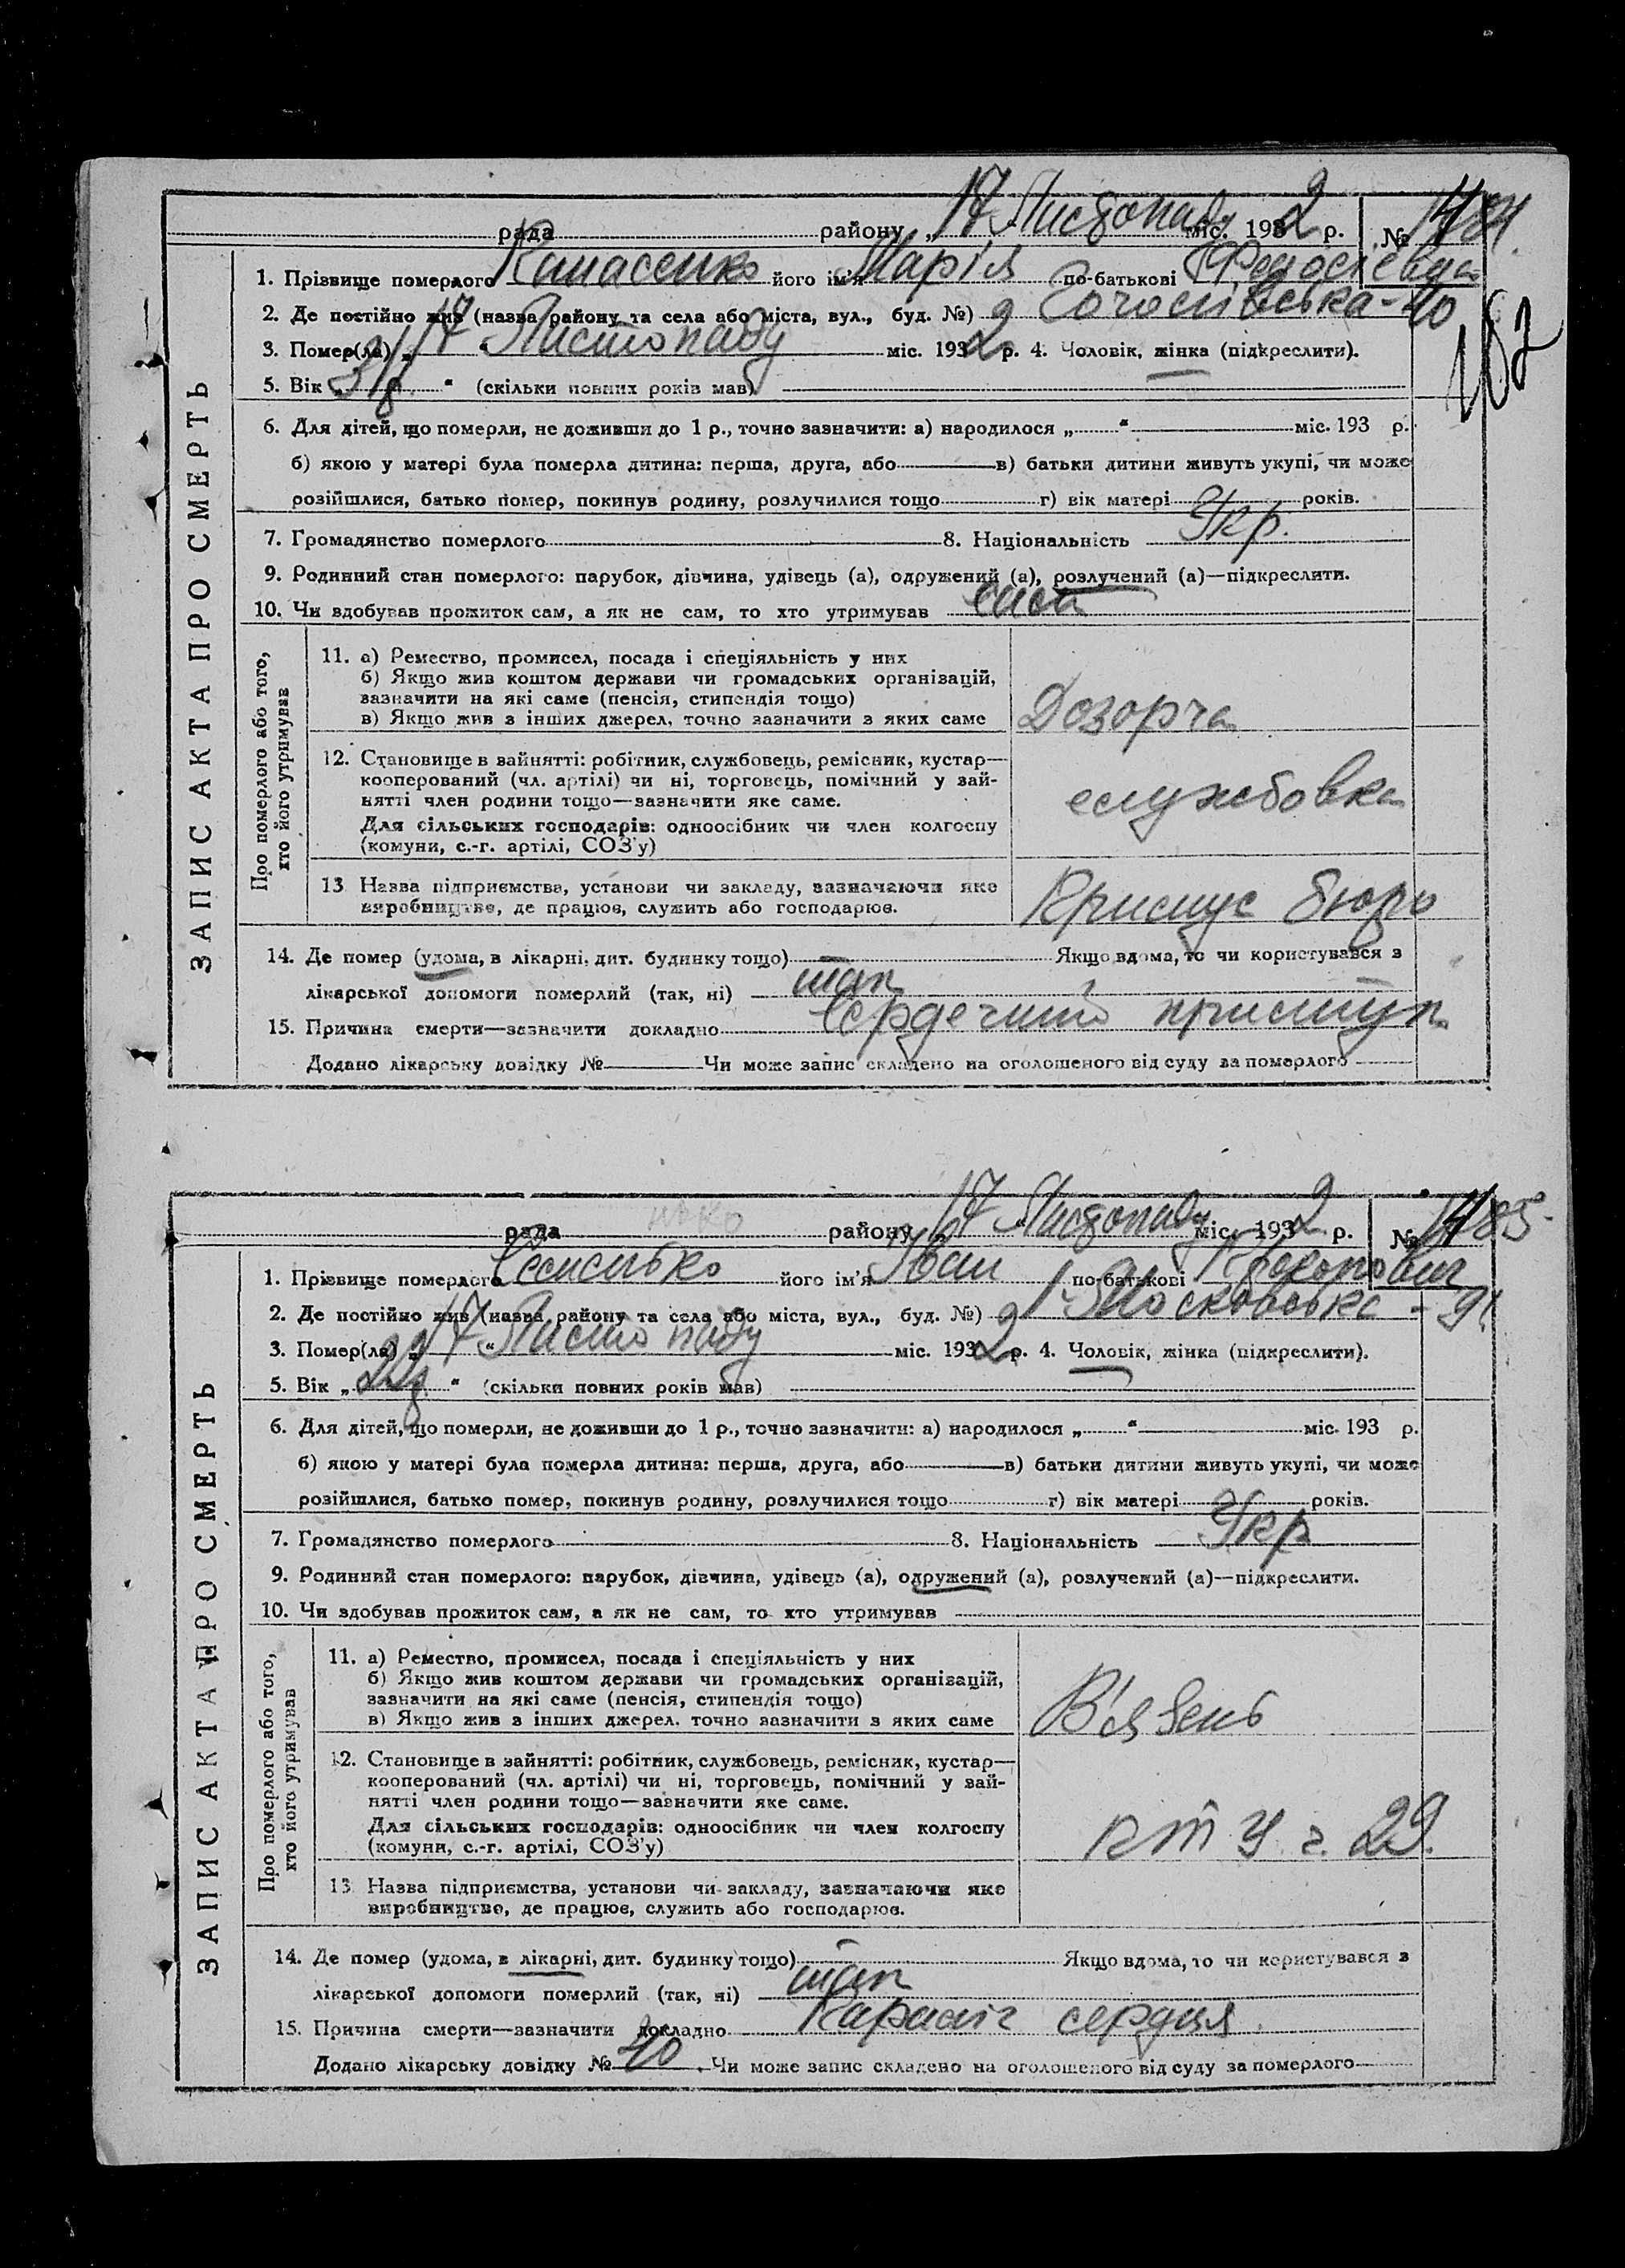 рада району „17" Листопаду міс. 1932 р. № 1484
1. Прізвище померлого його ім'я Марія по-батькові
2. Де постійно жив (назва району та села або міста, вул., буд. №) 40
162
3. Помер(ла) „17" Листопаду міс. 1932 р. 4. Чоловік, жінка (підкреслити).
5. Вік „ " (скільки повних років мав)
6. Для дітей, що померли, не доживши до 1 р., точно зазначити: а) народилося „ " міс. 193 р.
б) якою у матері була померла дитина: перша, друга, або в) батьки дитини живуть укупі, чи може
розійшлися, батько помер, покинув родину, розлучилися тощо г) вік матері років.
7. Громадянство померлого 8. Національність Укр.
9. Родинний стан померлого: парубок, дівчина, удівець (а), одружений (а), розлучений (а)—підкреслити.
10. Чи здобував прожиток сам, а як не сам, то хто утримував сама
ЗАПИС АКТА ПРО СМЕРТЬ
Про померлого або того, хто його утримував
11. а) Ремество, промисел, посада і спеціяльність у них
б) Якщо жив коштом держави чи громадських організацій,
зазначити на які саме (пенсія, стипендія тощо)
в) Якщо жив з інших джерел, точно зазначити з яких саме
Дозорча
12. Становище в зайнятті: робітник, службовець, ремісник, кустар—
кооперований (чл. артілі) чи ні, торговець, помічний у зай-
нятті член родини тощо—зазначити яке саме.
Для сільських господарів: одноосібник чи член колгоспу
(комуни, с.-г. артілі, СОЗ'у)
службовка
13. Назва підприємства, установи чи закладу, зазначаючи яке
виробництво, де працює, служить або господарює.
бюро
14. Де помер (удома, в лікарні, дит. будинку тощо) Якщо вдома, то чи користувався з
лікарської допомоги померлий (так, ні) так
15. Причина смерти—зазначити докладно Сердечний приступ
Додано лікарську довідку № Чи може запис складено на оголошеного від суду за померлого
рада району „17" Листопаду міс. 1932 р. № 1485
1. Прізвище померлого його ім'я Іван по-батькові Прокопович
2. Де постійно жив (назва району та села або міста, вул., буд. №) Московська
3. Помер(ла) „17" Листопаду міс. 1932 р. 4. Чоловік, жінка (підкреслити).
5. Вік „ " (скільки повних років мав)
6. Для дітей, що померли, не доживши до 1 р., точно зазначити: а) народилося „ " міс. 193 р.
б) якою у матері була померла дитина: перша, друга, або в) батьки дитини живуть укупі, чи може
розійшлися, батько помер, покинув родину, розлучилися тощо г) вік матері років.
7. Громадянство померлого 8. Національність Укр
9. Родинний стан померлого: парубок, дівчина, удівець (а), одружений (а), розлучений (а)—підкреслити.
10. Чи здобував прожиток сам, а як не сам, то хто утримував
ЗАПИС АКТА ПРО СМЕРТЬ
Про померлого або того, хто його утримував
11. а) Ремество, промисел, посада і спеціяльність у них
б) Якщо жив коштом держави чи громадських організацій,
зазначити на які саме (пенсія, стипендія тощо)
в) Якщо жив з інших джерел. точно зазначити з яких саме
В'язень
12. Становище в зайнятті: робітник, службовець, ремісник, кустар—
кооперований (чл. артілі) чи ні, торговець, помічний у зай-
нятті член родини тощо—зазначити яке саме.
Для сільських господарів: одноосібник чи член колгоспу
(комуни, с.-г. артілі, СОЗ'у)
29.
13. Назва підприємства, установи чи закладу, зазначаючи яке
виробництво, де працює, служить або господарює.
14. Де помер (удома, в лікарні, дит. будинку тощо) Якщо вдома, то чи користувався з
лікарської допомоги померлий (так, ні) так
15. Причина смерти—зазначити докладно Параліч сердця.
Додано лікарську довідку № 40 Чи може запис складено на оголошеного від суду за померлого